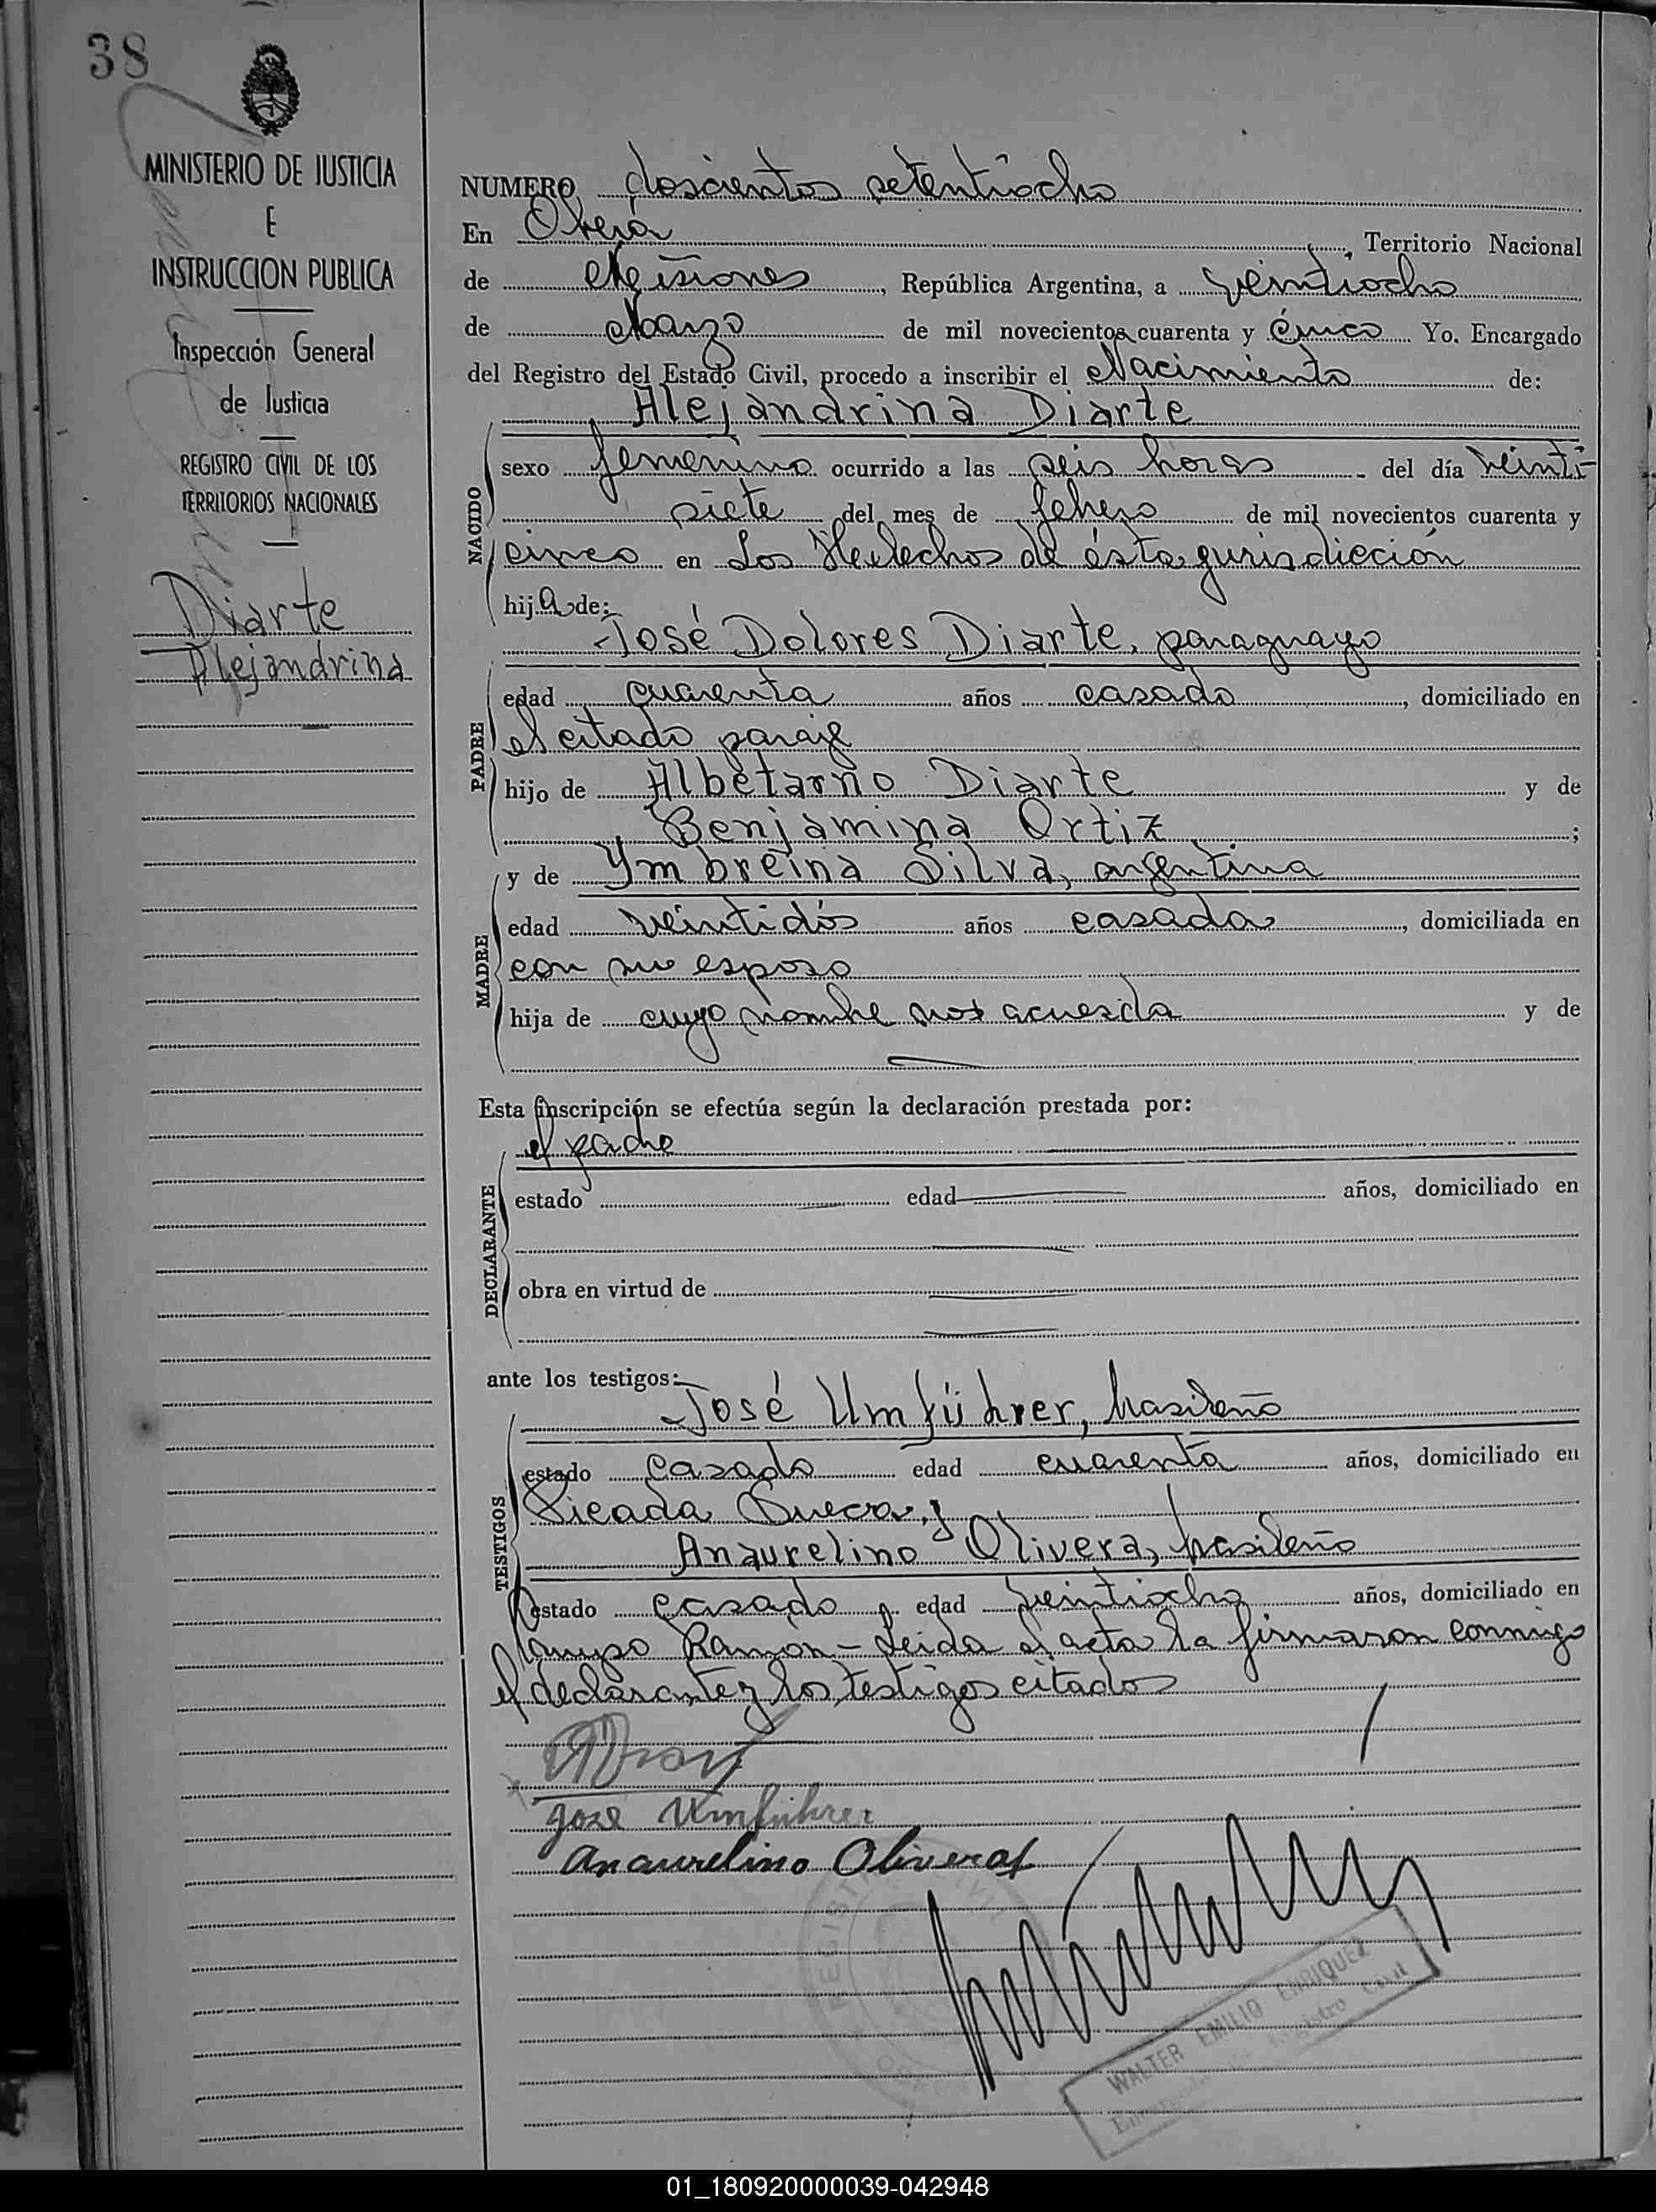 38
MINISTERIO DE JUSTICIA
E
INSTRUCCION PUBLICA
Inspección General
de Justicia
REGISTRO CIVIL DE LOS
TERRITORIOS NACIONALES
Diarte
Alejandrina
NUMERO doscientos setentiocho
En Oberá, Territorio Nacional
de Misiones, República Argentina, a veintiocho
de Marzo de mil novecientos cuarenta y cinco Yo. Encargado
del Registro del Estado Civil, procedo a inscribir el Nacimiento de:
Alejandrina Diarte
NACIDO
sexo femenino ocurrido a las seis horas del día veinti-
siete del mes de febrero de mil novecientos cuarenta y
cinco en Los Helechos de ésta jurisdicción
hija de:
José Dolores Diarte, paraguayo
PADRE
edad cuarenta años casado, domiciliado en
el citado paraje
hijo de Albetarno Diarte y de
Benjamina Ortiz;
y de Ymbreina Silva, argentina
MADRE
edad veintidós años casada, domiciliada en
con su esposo
hija de cuyo nombre no acuerda y de
Esta inscripción se efectúa según la declaración prestada por:
el padre
DECLARANTE
estado edad años, domiciliado en
obra en virtud de
ante los testigos:
José Umführer, brasileño
TESTIGOS
estado casado edad cuarenta años, domiciliado en
Picada Sueca, y
Anaurelino Olivera, brasileño
estado casado edad veintiocho años, domiciliado en
Campo Ramón - Leida el acta la firmaron conmigo
el declarante y los testigos citados
Jose Umführer
Anaurelino Olivera
WALTER EMILIO ENRIQUEZ
Encargado Registro Civil
01_180920000039-042948